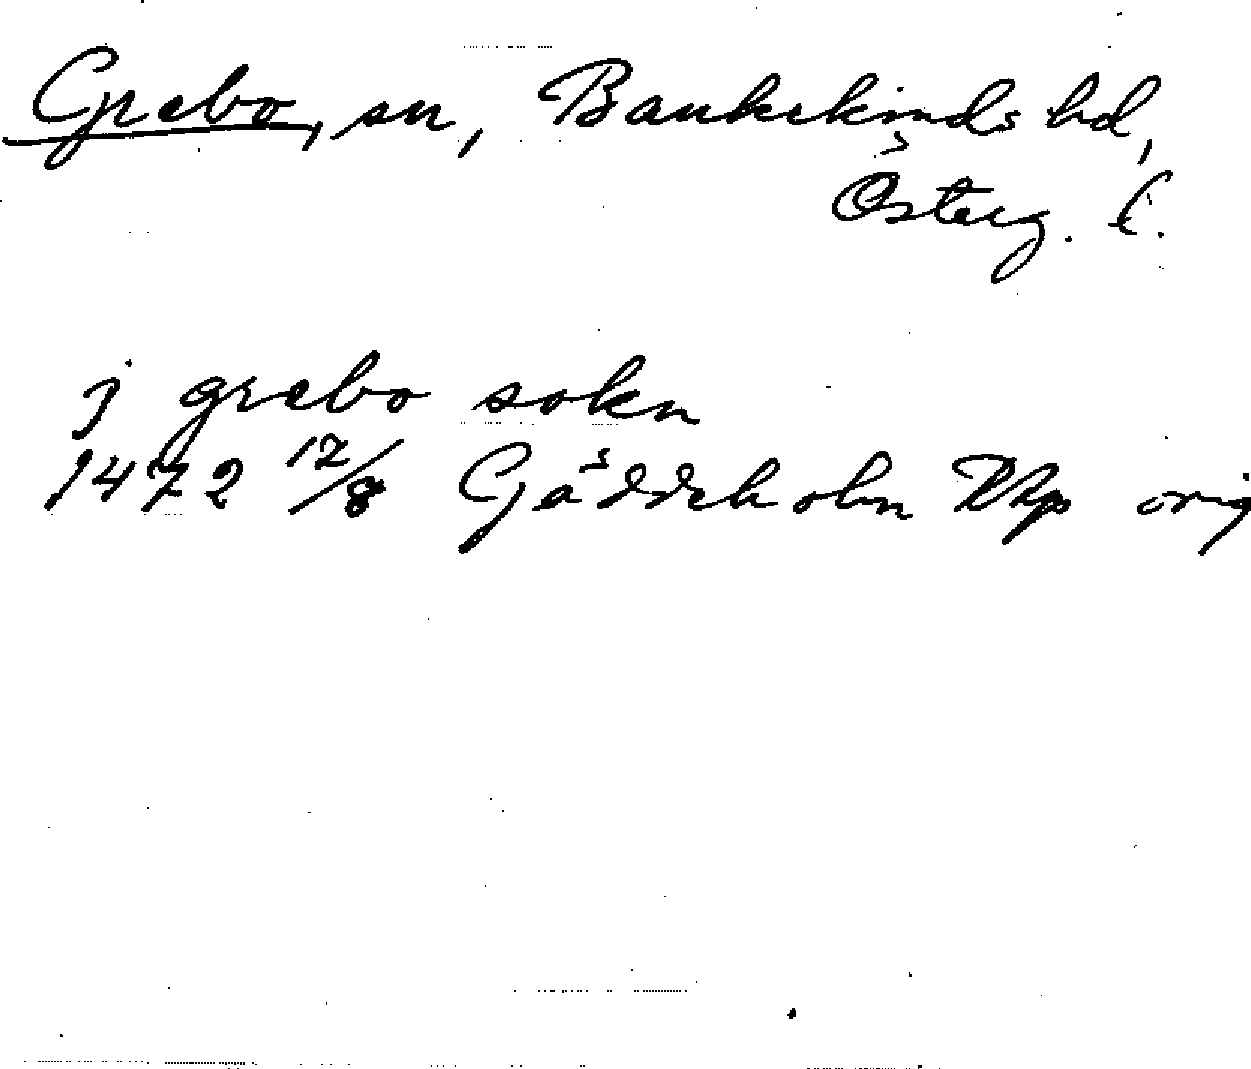 Grebo, sn, Bankekinds hd,
Österg. l.
j grebo sokn
1472 17/8 Gäddeholm Dhp orig